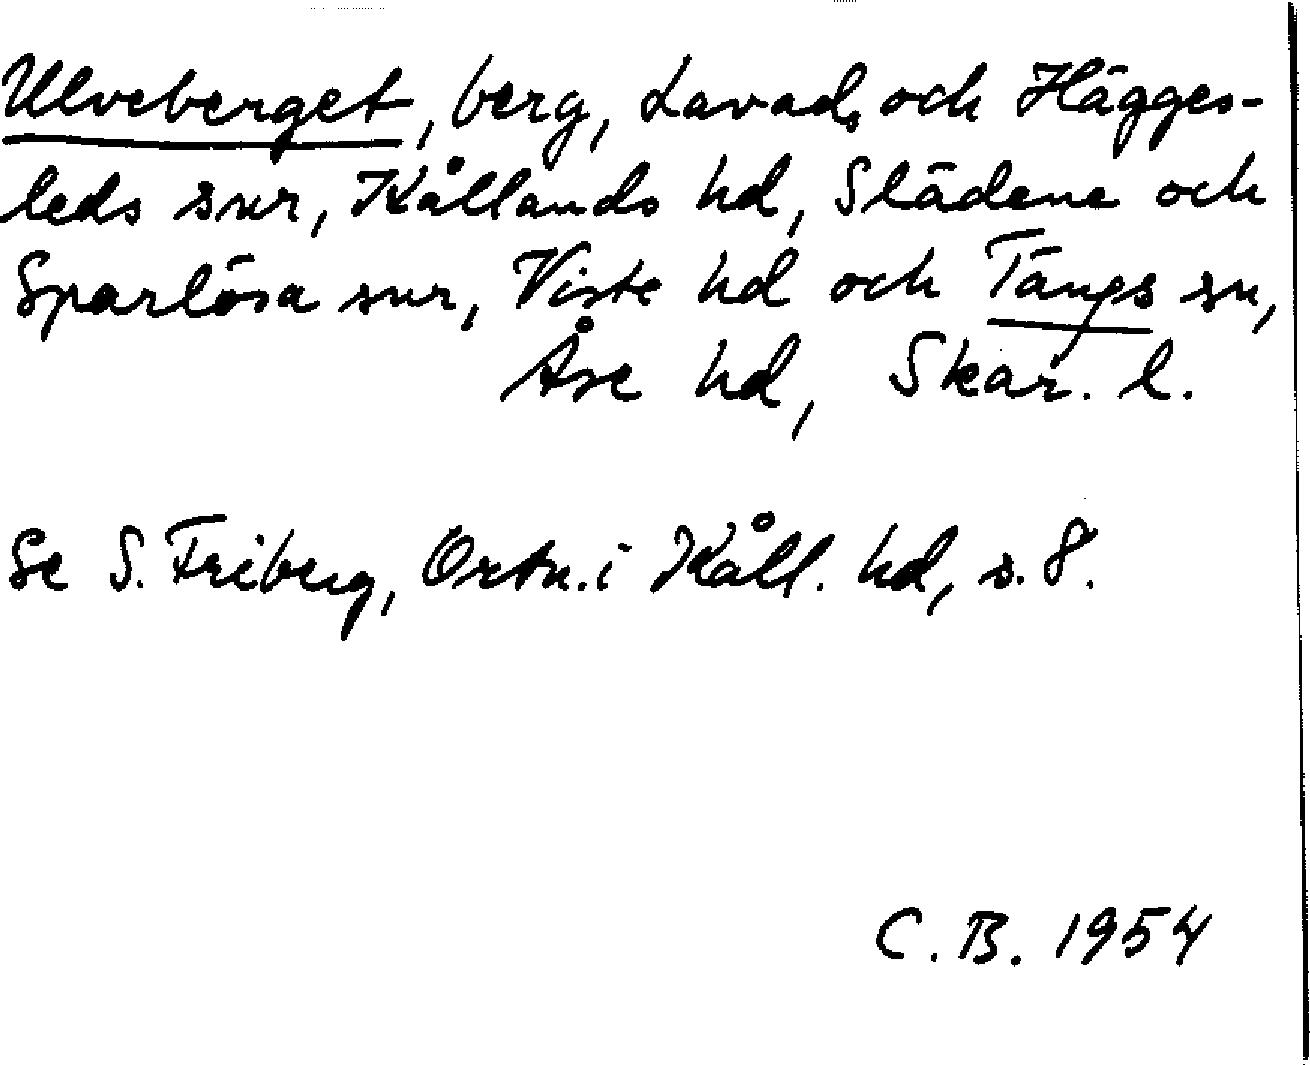 Ulveberget, berg, Lavads och Hägges-
leds snr, Kållands hd, Slädene och
Sparlösa snr, Viste hd och Tängs sn,
Åse hd, Skar. l.
Se S. Friberg, Ortn. i Kåll. hd, s. 8.
C. B. 1954